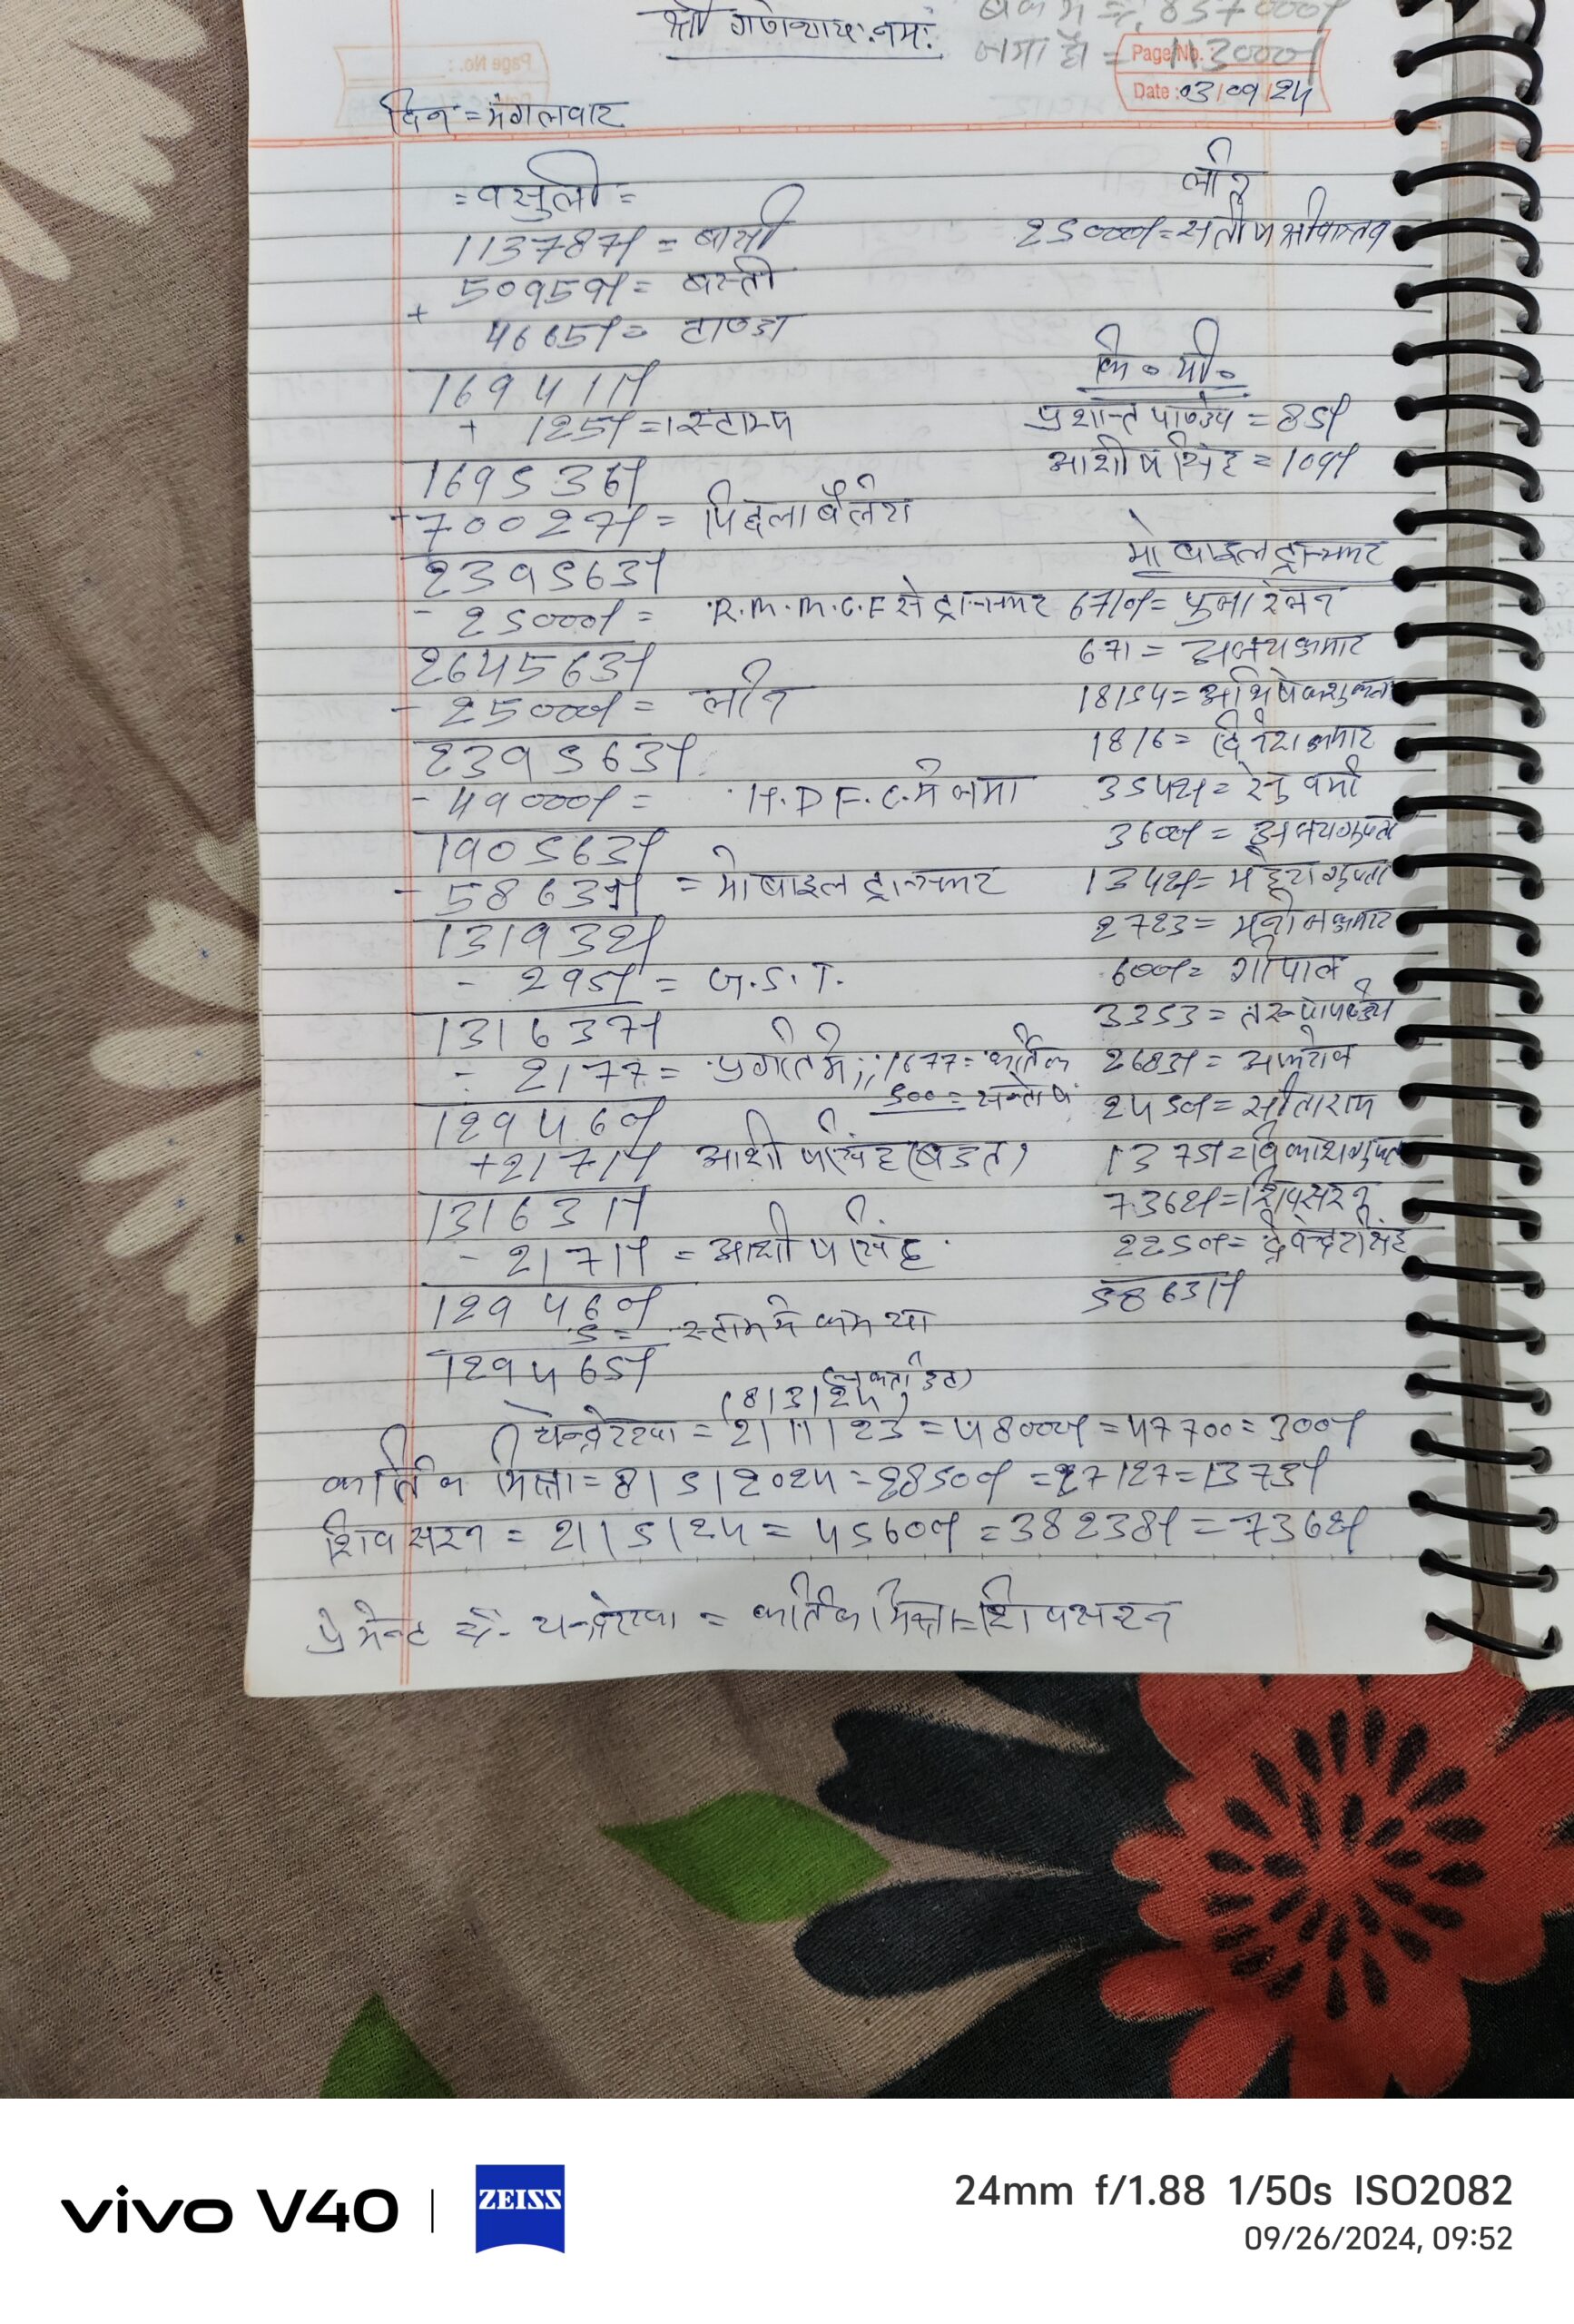 श्री गणेशाय: नम:
बकस में है. 857000/-
जमा है = 113000/-
Page No.
Date : 03/09/24
दिन = मंगलवार
= वसुली =
113787/- = बासी
50959/- = बस्ती
+ 4665/- = टाण्डा
169411/-
+ 125/- = स्टाम्प
169536/-
+ 70027/- = पिछला बैलेंश
239563/-
- 25000/- = R.M.M.C.F से ट्रान्सफर
264563/-
- 25000/- = लोन
239563/-
- 49000/- = H.D.F.C. में जमा
190563/-
- 58631/- = मोबाइल ट्रान्सफर
131932/-
- 295/- = G.S.T.
131637/-
- 2177 = प्रगति में ,, 1677 = कार्तिक
500 = सन्तोष
129460/-
+ 2171/- आशीष सिंह (बडत)
131631/-
- 2171/- = आशीष सिंह
129460/-
5 = स्टाम में कम था
129465/-
लोन
25000/- = सतीष श्रीवास्तव
कि॰ मी॰
प्रशान्त पाण्डेय = 85/-
आशीष सिंह = 109/-
मोबाइल ट्रान्सफर
6710/- = पुजा रंजन
671 = अजय कुमार
18154 = अभिषेक शुक्ला
1816 = दिनेश कुमार
3542/- = रेनु वर्मा
3600/- = अजय गुप्ता
1342/- = महेश गुप्ता
2723 = मनोज कुमार
600/- = गोपाल
3353 = तरू पाण्डेय
2683/- =
2450/- = सीताराम
1375/- = विकाश गुप्ता
7362/- = शिवसरन
2250/- = देवेन्द्र सिंह
58631/-
(8/3/24)
= 21/11/23 = 48000/- = 47700 = 300/-
कार्तिक मिश्रा = 8/5/2024 = 28500/- = 27127 = 1373/-
शिवसरन = 21/5/24 = 45600/- = 38238/- = 7362/-
पेमेन्ट है - = कार्तिक मिश्रा = शिवसरन
vivo V40
ZEISS
24mm f/1.88 1/50s ISO2082
09/26/2024, 09:52